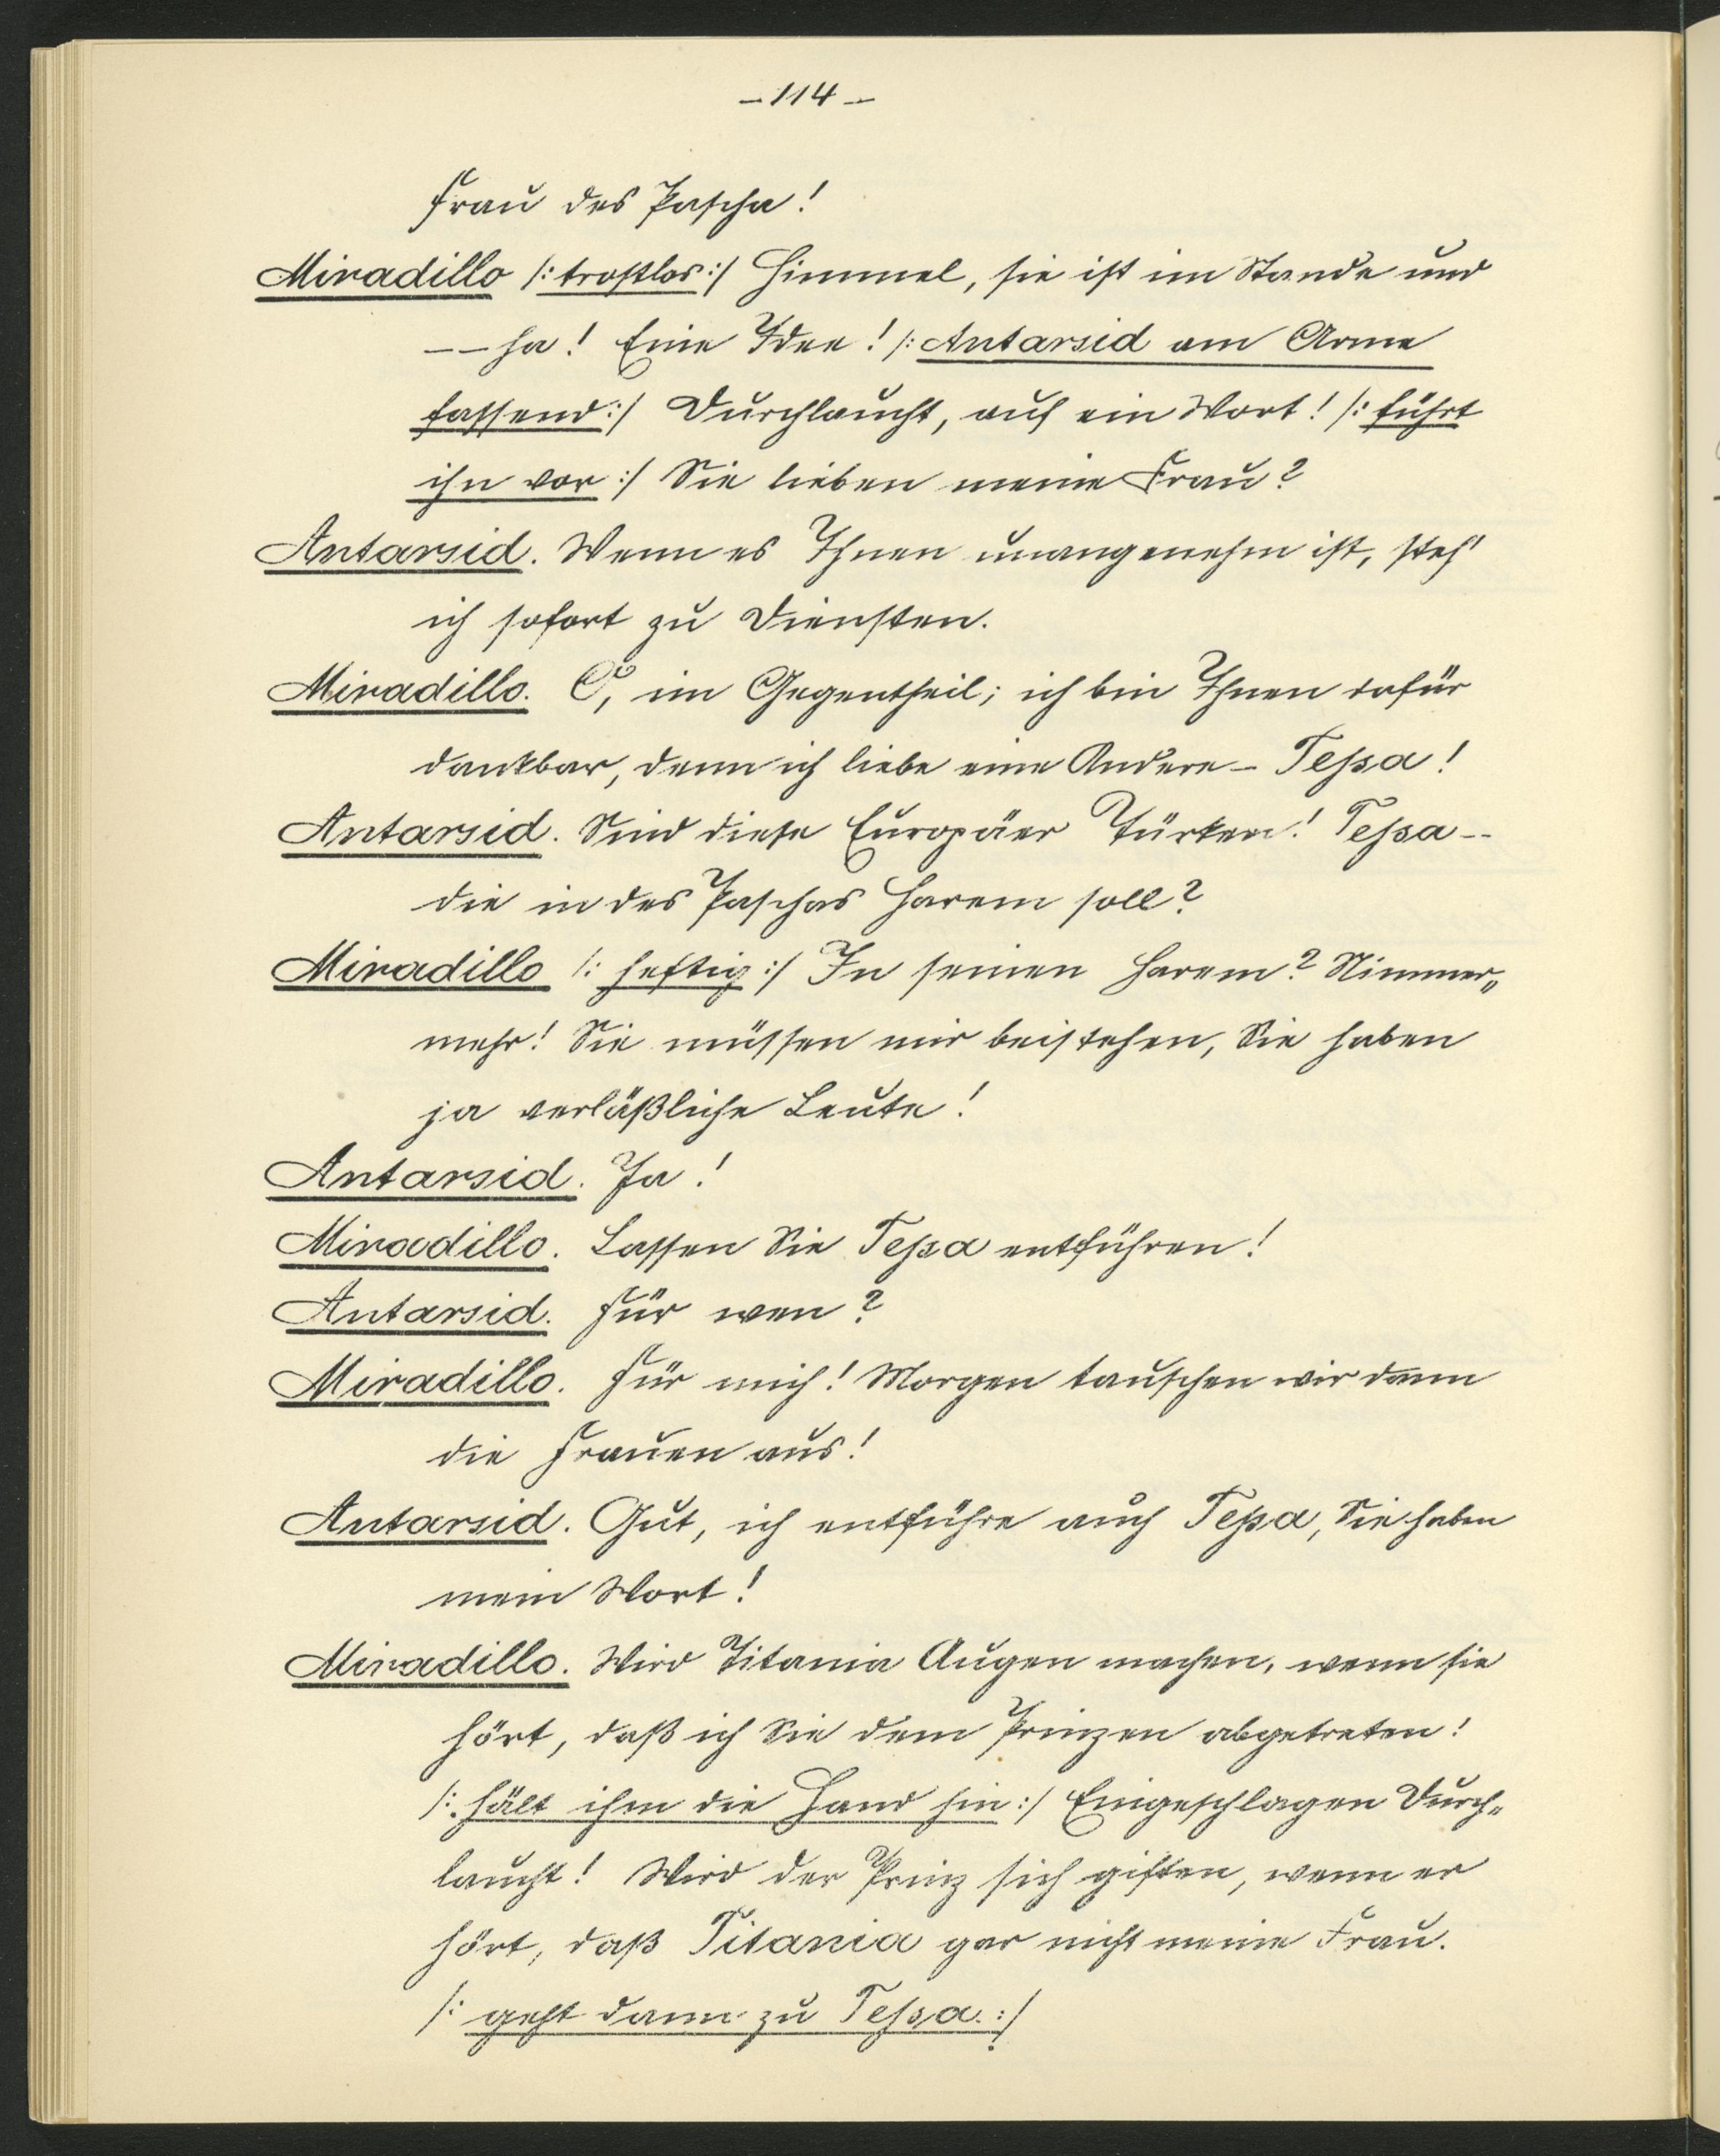 – 114 –
Frau des Pascha!
Miradillo /: trostlos :/ Himmel, sie ist im Stande und
– – ha! Eine Idee! /: Antarsid am Arme
fassend :/ Durchlaucht, auf ein Wort! /: führt
ihn vor :/ Sie lieben meine Frau?
Antarsid. Wenn es Ihnen unangenehm ist, steh'
ich sofort zu Diensten.
Miradillo. O, im Gegentheil; ich bin Ihnen dafür
dankbar, denn ich liebe eine Andere – Tessa!
Antarsid. Sind diese Europäer Türken! Tessa –
die in des Paschas Harem soll?
Miradillo /: heftig :/ In seinen Harem? Nimmer„
mehr! Sie müssen mir beistehen, Sie haben
ja verläßliche Leute!
Antarsid. Ja!
Miradillo. Lassen Sie Tessa entführen!
Antarsid. Für wen?
Miradillo. Für mich! Morgen tauschen wir dann
die Frauen aus!
Antarsid. Gut, ich entführe auch Tessa, Sie haben
mein Wort!
Miradillo. Wird Titania Augen machen, wenn sie
hört, daß ich Sie dem Prinzen abgetreten!
/: hält ihm die Hand hin :/ Eingeschlagen Durch„
laucht! Wird der Prinz sich giften, wenn er
hört, daß Titania gar nicht meine Frau.
/: geht dann zu Tessa. :/